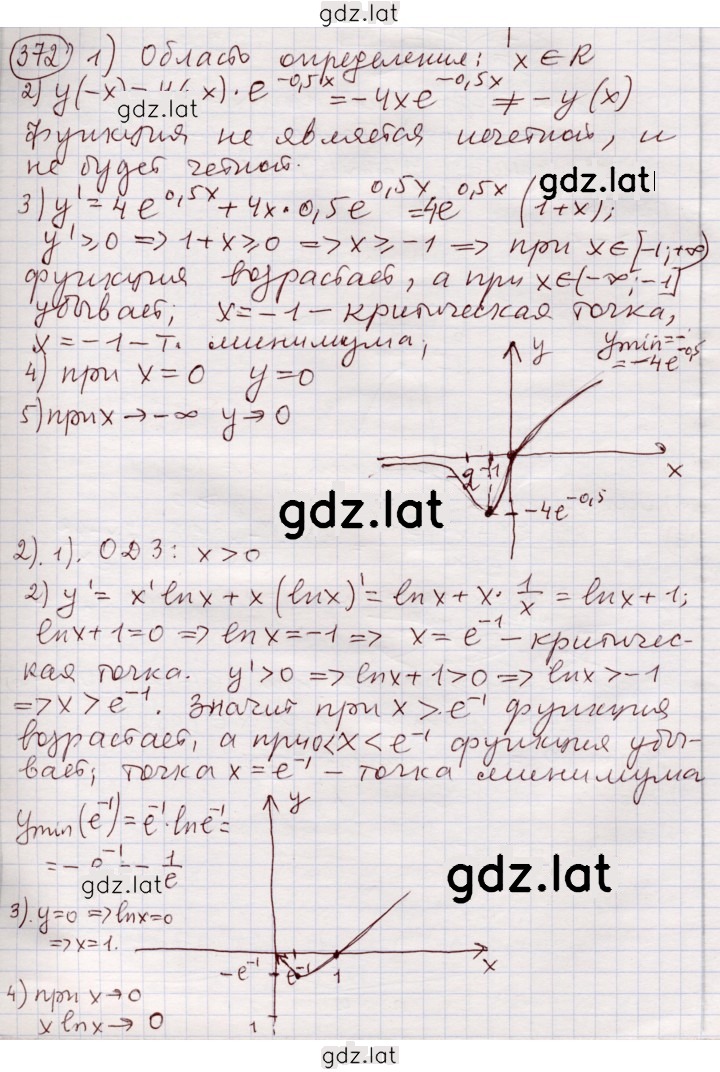 gdz.lat
372 1) Область определения: x ∈ R
2) y(-x)= x)·e^{-0,5x} = -4xe^{-0,5x} ≠ -y(x)
gdz.lat
функция не является нечетной, и
не будет четной.
gdz.lat
3) y' = 4e^{0,5x} + 4x·0,5e^{0,5x} = 4e^{0,5x} (1+x);
y' ≥ 0 => 1+x ≥ 0 => x ≥ -1 => при x ∈ [-1; +∞)
функция возрастает, а при x ∈ (-∞; -1]
убывает; x = -1 - критическая точка,
x = -1 - т. минимума;
ymin =
= -4e^{-0,5}
4) при x = 0 y = 0
5) при x → -∞ y → 0
y
-2 -1
x
-4e^{-0,5}
gdz.lat
2). 1). ОДЗ: x > 0
2) y' = x' lnx + x (lnx)' = lnx + x · 1/x = lnx + 1;
lnx + 1 = 0 => lnx = -1 => x = e^{-1} - критичес-
кая точка. y' > 0 => lnx + 1 > 0 => lnx > -1
=> x > e^{-1}. Значит при x > e^{-1} функция
возрастает, а при 0 < x < e^{-1} функция убы-
вает; точка x = e^{-1} - точка минимума
y
ymin (e^{-1}) = e^{-1} · ln e^{-1} =
= - e^{-1} = - 1/e
gdz.lat
gdz.lat
3). y = 0 => lnx = 0
=> x = 1.
-e^{-1} e^{-1} 1
x
4) при x → 0
x lnx → 0
1
gdz.lat